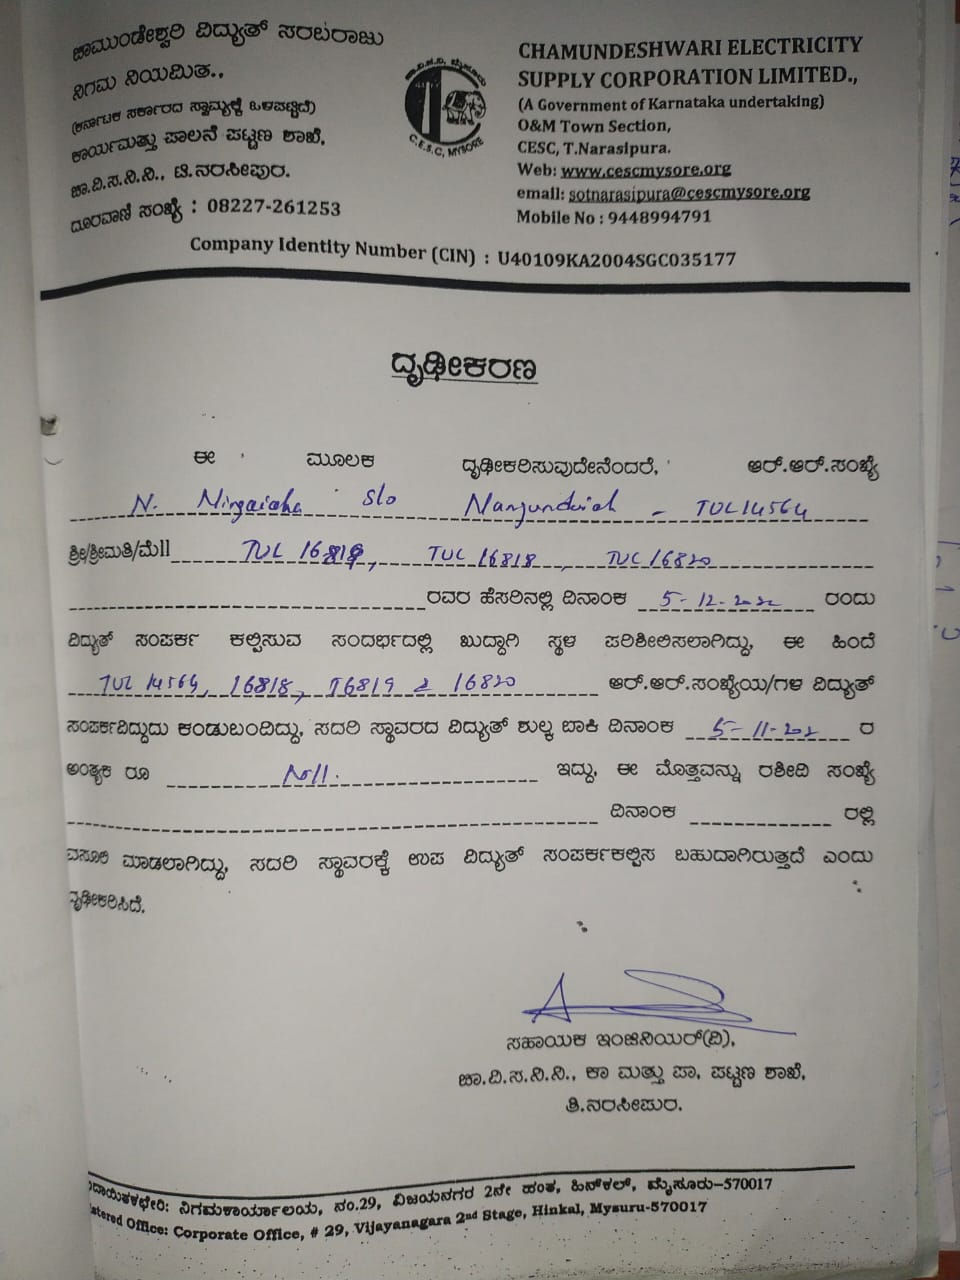 ಚಾಮುಂಡೇಶ್ವರಿ ವಿದ್ಯುತ್ ಸರಬರಾಜು
ನಿಗಮ ನಿಯಮಿತ.,
(ಕರ್ನಾಟಕ ಸರ್ಕಾರದ ಸ್ವಾಮ್ಯಕ್ಕೆ ಒಳಪಟ್ಟಿದೆ)
ಕಾರ್ಯಮತ್ತು ಪಾಲನೆ ಪಟ್ಟಣ ಶಾಖೆ,
ಚಾ.ವಿ.ಸ.ನಿ.ನಿ., ಟಿ.ನರಸೀಪುರ.
ದೂರವಾಣಿ ಸಂಖ್ಯೆ : 08227-261253
C.E.S.C, MYSORE
CHAMUNDESHWARI ELECTRICITY
SUPPLY CORPORATION LIMITED.,
(A Government of Karnataka undertaking)
O&M Town Section,
CESC, T.Narasipura.
Web: www.cescmysore.org
email: sotnarasipura@cescmysore.org
Mobile No : 9448994791
Company Identity Number (CIN) : U40109KA2004SGC035177
ದೃಢೀಕರಣ
ಈ ಮೂಲಕ ದೃಢೀಕರಿಸುವುದೇನೆಂದರೆ, ಆರ್.ಆರ್.ಸಂಖ್ಯೆ
N. Ningaiaha S/o Nanjundaiah - TUL14564
ಶ್ರೀ/ಶ್ರೀಮತಿ/ಮೆ|| TUL 16819, TUL 16818, TUL 16820
ರವರ ಹೆಸರಿನಲ್ಲಿ ದಿನಾಂಕ 5-12-2022 ರಂದು
ವಿದ್ಯುತ್ ಸಂಪರ್ಕ ಕಲ್ಪಿಸುವ ಸಂದರ್ಭದಲ್ಲಿ ಖುದ್ದಾಗಿ ಸ್ಥಳ ಪರಿಶೀಲಿಸಲಾಗಿದ್ದು, ಈ ಹಿಂದೆ
TUL 14564, 16818, 16819 & 16820 ಆರ್.ಆರ್.ಸಂಖ್ಯೆಯ/ಗಳ ವಿದ್ಯುತ್
ಸಂಪರ್ಕವಿದ್ದುದು ಕಂಡುಬಂದಿದ್ದು, ಸದರಿ ಸ್ಥಾವರದ ವಿದ್ಯುತ್ ಶುಲ್ಕ ಬಾಕಿ ದಿನಾಂಕ 5-11-22 ರ
ಅಂತ್ಯಕ ರೂ Nill. ಇದ್ದು, ಈ ಮೊತ್ತವನ್ನು ರಶೀದಿ ಸಂಖ್ಯೆ
ದಿನಾಂಕ ರಲ್ಲಿ
ವಸೂಲಿ ಮಾಡಲಾಗಿದ್ದು, ಸದರಿ ಸ್ಥಾವರಕ್ಕೆ ಉಪ ವಿದ್ಯುತ್ ಸಂಪರ್ಕಕಲ್ಪಿಸ ಬಹುದಾಗಿರುತ್ತದೆ ಎಂದು
ದೃಢೀಕರಿಸಿದೆ.
ಸಹಾಯಕ ಇಂಜಿನಿಯರ್(ವಿ),
ಚಾ.ವಿ.ಸ.ನಿ.ನಿ., ಕಾ ಮತ್ತು ಪಾ, ಪಟ್ಟಣ ಶಾಖೆ,
ತಿ.ನರಸೀಪುರ.
ನಿಗಮಕಾರ್ಯಾಲಯ, ನಂ.29, ವಿಜಯನಗರ 2ನೇ ಹಂತ, ಹಿನ್‌ಕಲ್, ಮೈಸೂರು-570017
Office: Corporate Office, # 29, Vijayanagara 2nd Stage, Hinkal, Mysuru-570017